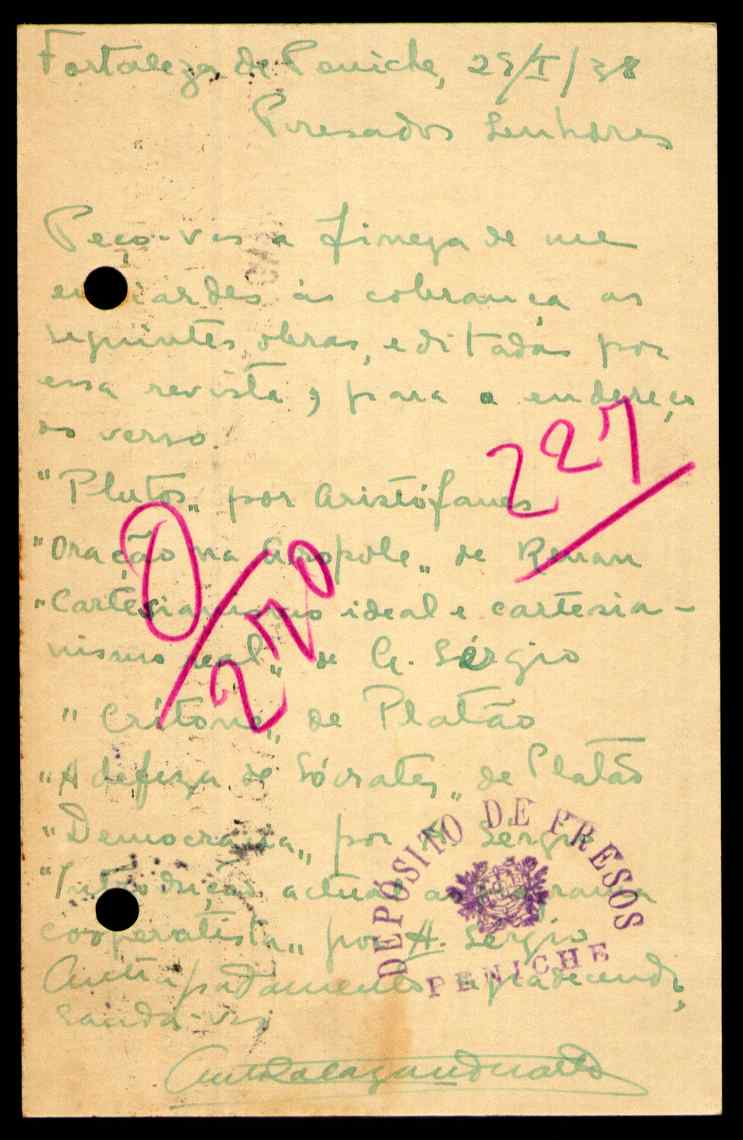 Fortaleza de Peniche, 29/I/38
Presados Senhores
Peço-vos a fineza de me
enviardes à cobrança as
seguintes obras, editadas por
essa revista, para o endereço
do verso.
"Plutos" por Aristófanes
"Oração na Acrópole" de Renan
"Cartesianismo ideal e cartesia-
nismo real" de A. Sérgio
"Críton", de Platão
"A defeza de Sócrates" de Platão
"Democracia" por A. Sérgio
"Introdução actual ao programa
cooperatista" por A. Sérgio
Antecipadamente agradecendo,
saúda-vos
227
0/270
DEPÓSITO DE PRESOS
PENICHE